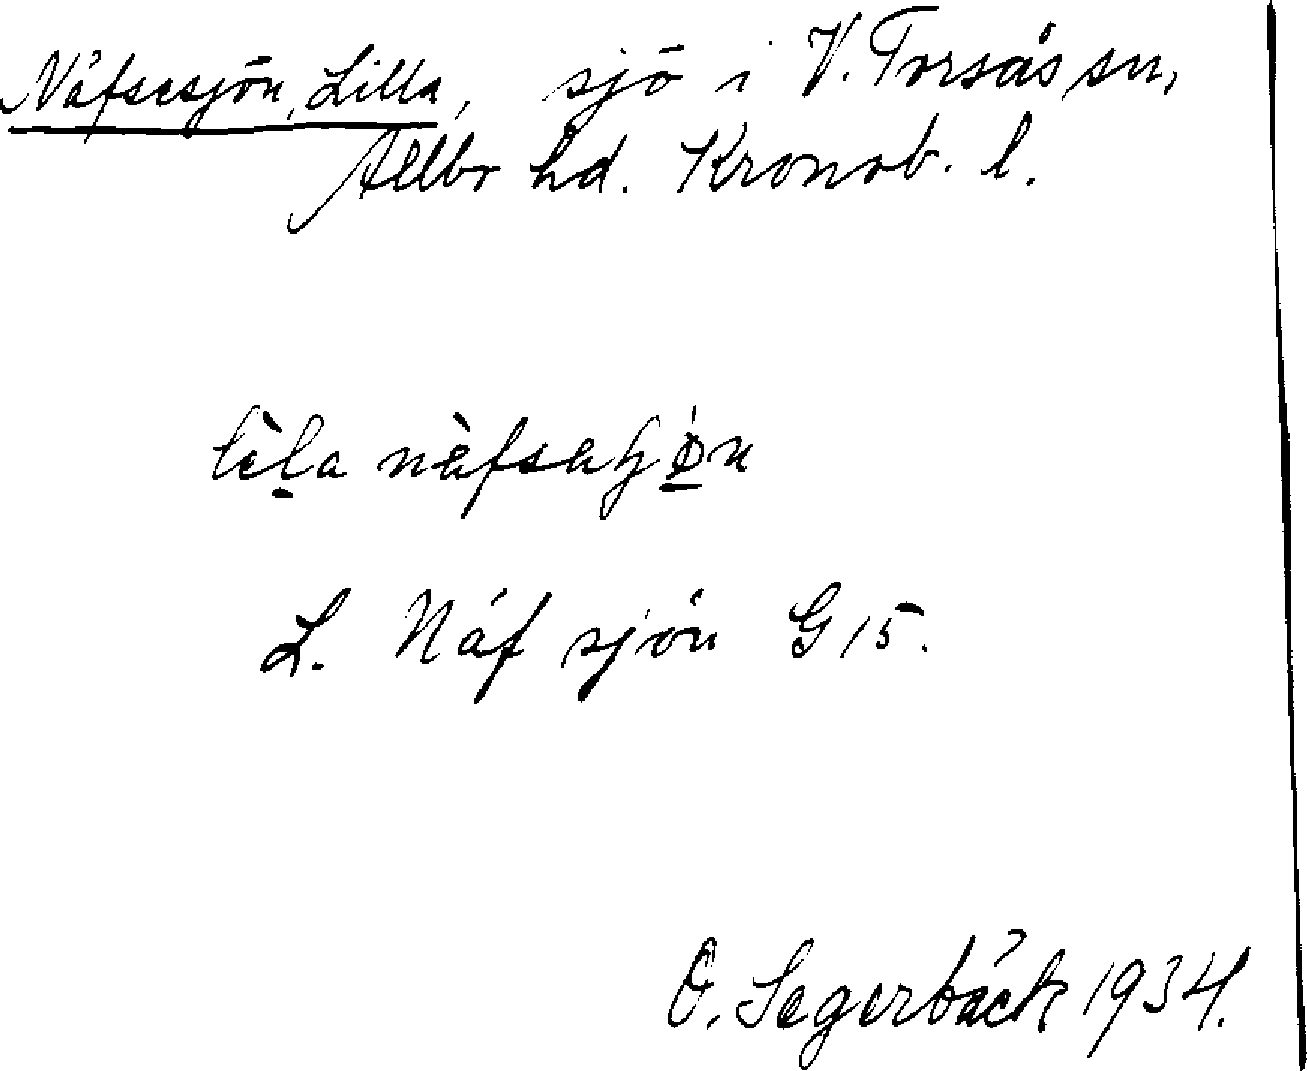 Näfsesjön, Lilla, sjö i V. Torsås sn,
Allbo hd. Kronob. l.
L. Näf sjön G 15.
O. Segerbäck 1934.